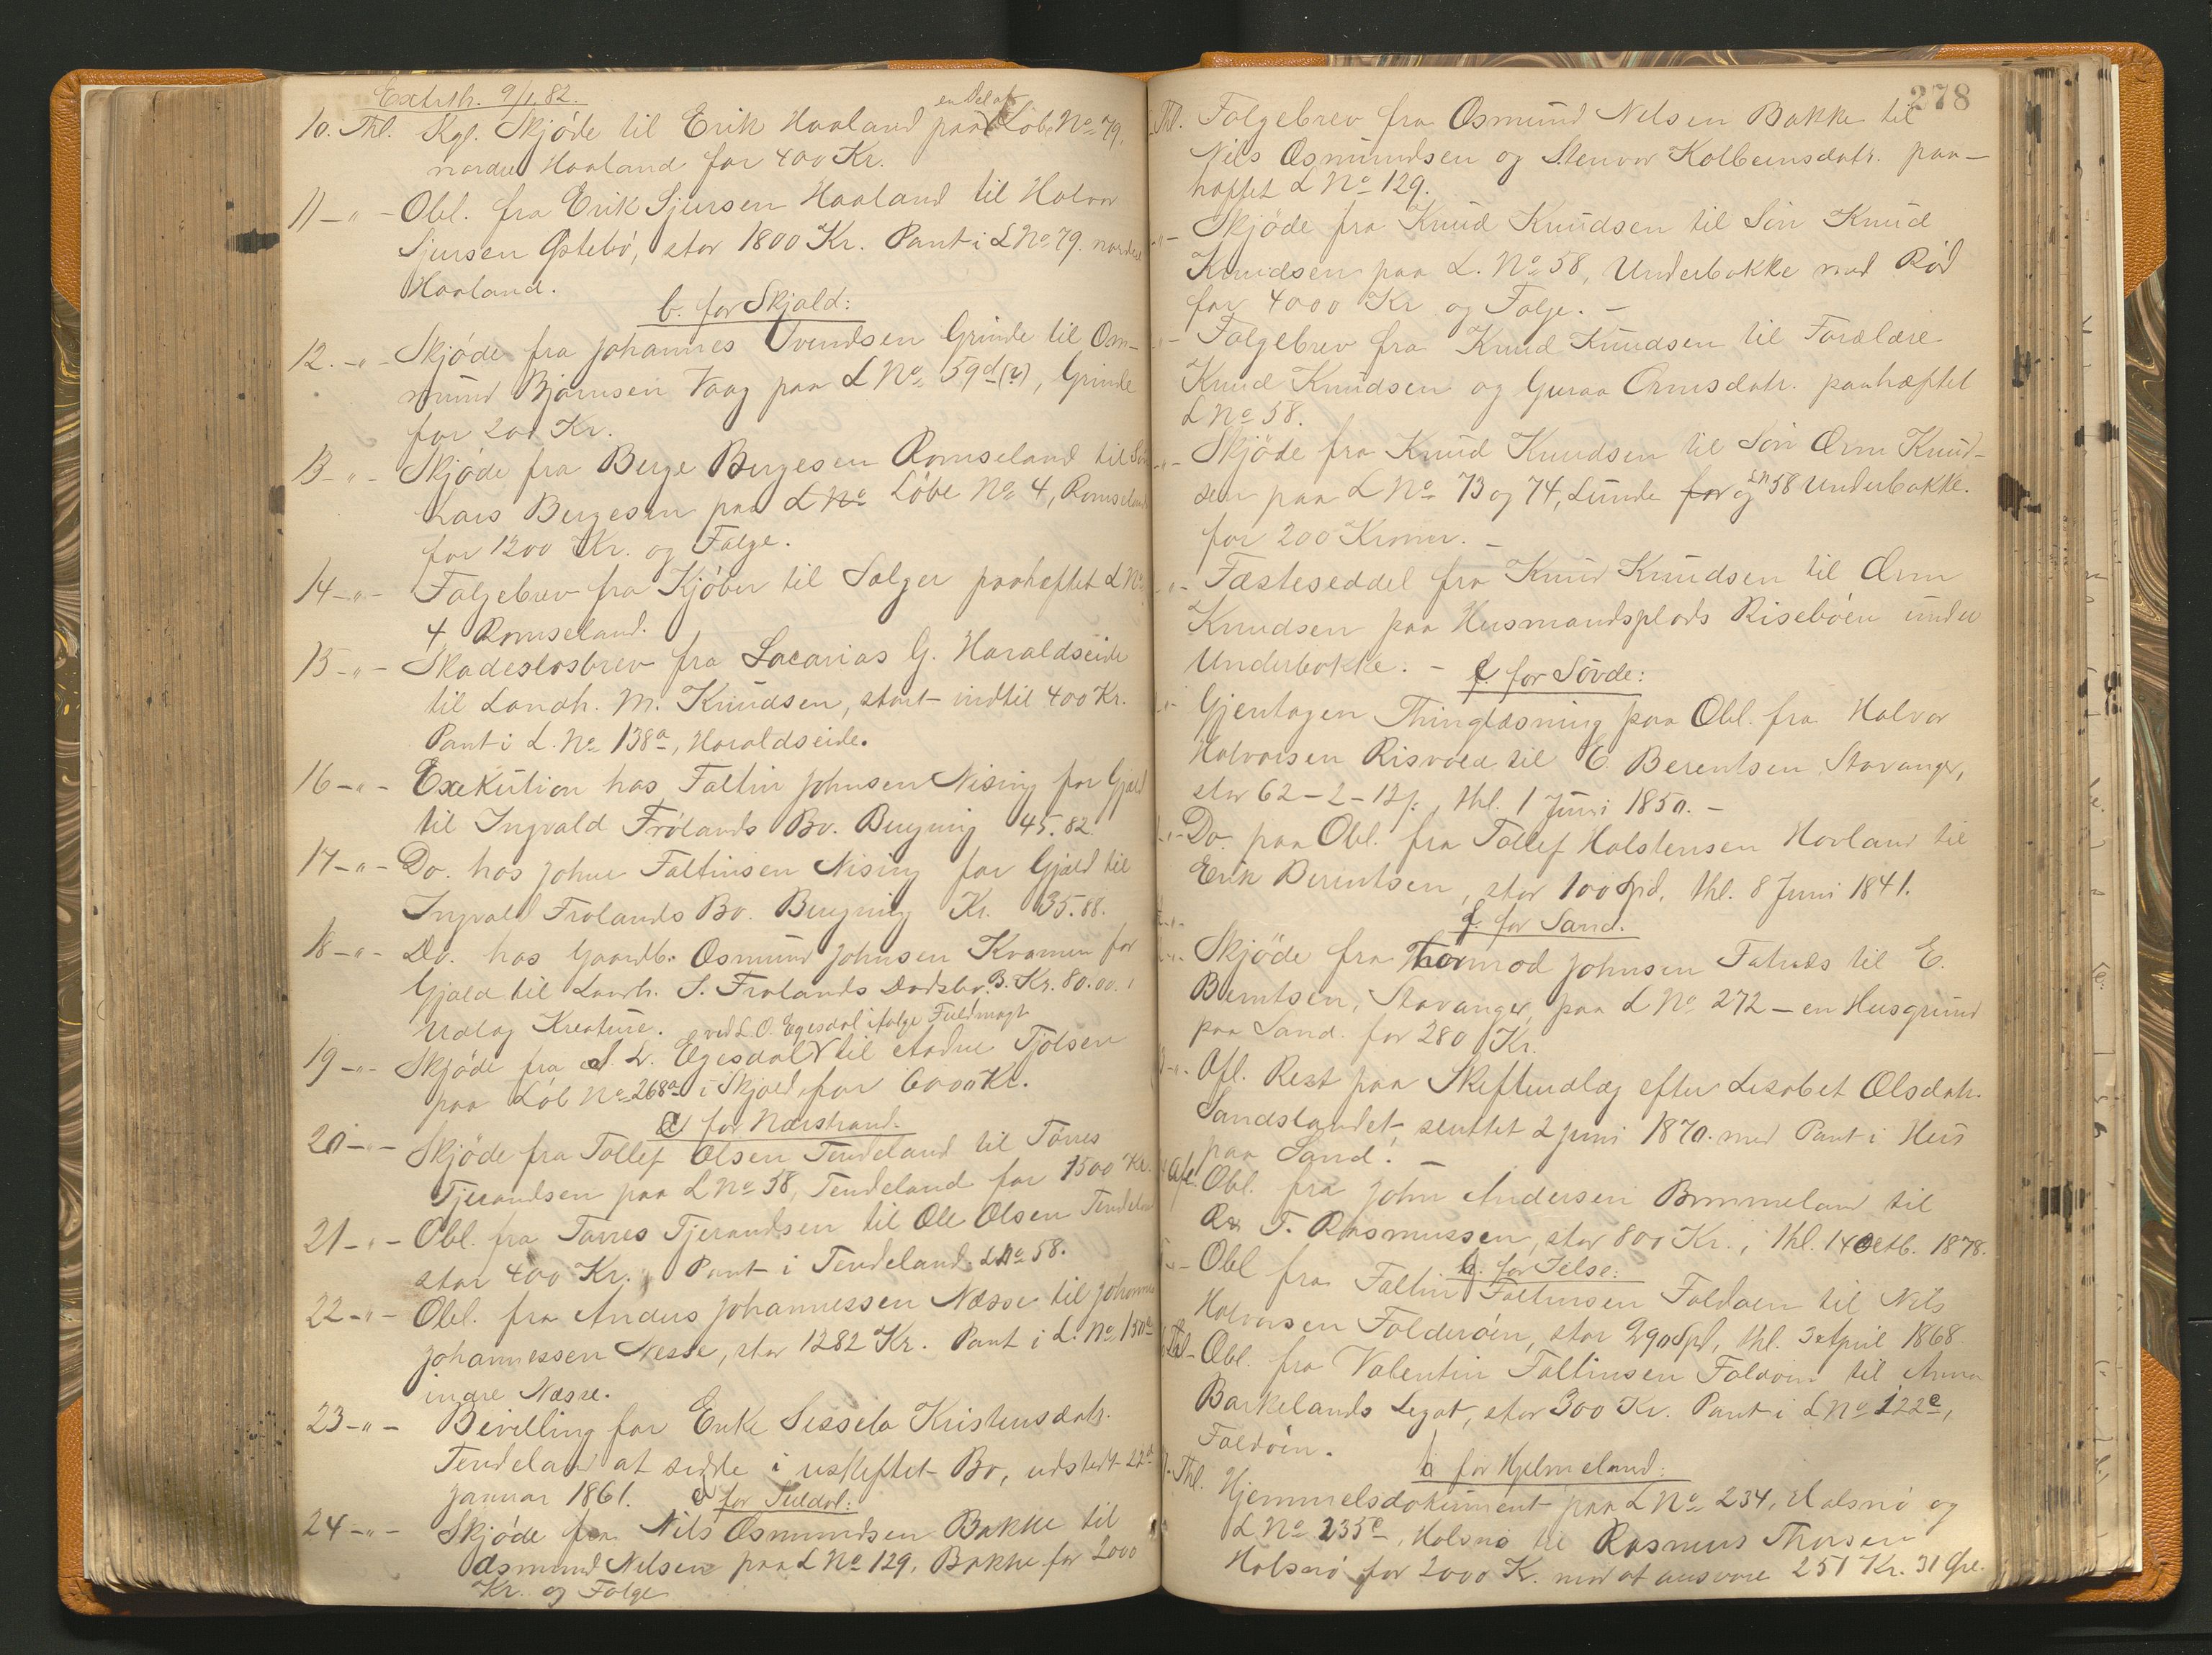 Extrth. 9/1 82.
10. Thl. Kgl. Skjøde til Erik Haaland paa en Del af Løbe No 79,
nordre Haaland for 400 Kr.
11 -"- Obl. fra Erik Sjursen Haaland til Halvor
Sjursen Østebø, stor 1800 Kr. Pant i L No 79. nordre
Haaland.
b. for Skjold:
12. -"- Skjøde fra Johannes Svendsen Grinde til Os-
mund Bjørnsen Vaag paa L No 59d (?), Grinde
for 200 Kr.
13 -"- Skjøde fra Berge Bergesen Romseland til Søn
Lars Bergesen paa L No Løbe No 4, Romseland
for 1200 Kr. og Følge.
14 -"- Følgebrev fra Kjøber til Sælger paahæftet L No
4 Romseland.
15 -"- Skadesløsbrev fra Sacarias G. Haraldseide
til Landh. M. Knudsen, stort indtil 400 Kr.
Pant i L. No 138a, Haraldseide.
16 -"- Exekution hos Faltin Johnsen Nising for Gjæld
til Ingvald Frølands Bo. Bugning 45.82.
17 -"- Do. hos Johne Faltinsen Nising for Gjæld til
Ingvald Frølands Bo. Bugning Kr. 35.88.
18 -"- Do. hos Gaardb. Osmund Johnsen Kvamen for
Gjæld til Landh. S. Frølands Dødsbo. B. Kr. 80.00. i
Udlag Kreature.
19 -"- Skjøde fra S. L. Egesdal ved L. O. Egesdal ifølge Fuldmagt til Aadne Tjølsen
paa Løb No 268a i Skjold for 6000 Kr.
for Nærstrand.
20 -"- Skjøde fra Tollef Olsen Tendeland til Tørres
Tjerandsen paa L No 58, Tendeland for 1500 Kr.
21 -"- Obl. fra Tørres Tjerandsen til Ole Olsen Tendeland
stor 400 Kr., Pant i Tendeland L No 58.
22 -"- Obl. fra Anders Johannessen Næsse til Johannes
Johannessen Nesse, stor 1282 Kr. Pant i L. No 150a
indre Næsse.
23 -"- Bevilling for Enke Sessela Kristensdatr.
Tendeland at sidde i uskiftet Bo, udstedt 22d
Januar 1861.
e for Suldal:
24 -"- Skjøde fra Nils Osmundsen Bakke til
Osmund Nilsen paa L No 129, Bakke for 2000
Kr. og Følge
278
Thl. Følgebrev fra Osmund Nelsen Bakke til
Nils Osmundsen og Stenvor Kolbeinsdatr. paa-
hæftet L No 129.
-"- Skjøde fra Knud Knudsen til Søn Knud
Knudsen paa L. No 58, Underbakke med Rød
for 4000 Kr og Følge. -
-"- Følgebrev fra Knud Knudsen til Forældre
Knud Knudsen og Guraa Ormsdatr. paahæftet
L No 58.
-"- Skjøde fra Knud Knudsen til Søn Orm Knud-
sen paa L No 73 og 74, Lunde for og LN 58 Underbakke.
for 200 Kroner. -
-"- Fæsteseddel fra Knud Knudsen til Orm
Knudsen paa Husmandsplads Risebøen under
Underbakke. -
f. for Søvde:
-"- Gjentagen Thinglæsning paa Obl. fra Halvor
Halvorsen Risvold til E. Berentsen Stavanger,
stor 62-2-12 s., thl. 1 Juni 1850. -
-"- Do. paa Obl. fra Tollef Halstensen Hovland til
Erik Berentsen, stor 100 Spd, thl. 8 Juni 1841.
g. for Sand.
-"- Skjøde fra Thormod Johnsen Fatnæs til E.
Berntsen, Stavanger, paa L No 272 - en Husgrund
paa Sand for 280 Kr.
-"- Afl. Rest paa Skifteudlæg efter Lisabet Olsdatr.
Sandslandet sluttet 2 Juni 1870. med Pant i Hus
paa Sand. -
Afl. Obl. fra John Andersen Brommeland til
R. T. Rasmussen, stor 800 Kr., thl. 14 Octb. 1878.
h. for Jelse:
-"- Obl fra Faltin Faltinsen Foldøen til Nils
Halvorsen Folderøen, stor 290 Spd, thl. 3 April 1868
Thl. Obl. fra Valentin Faltinsen Foldøen til Anna
Barkelands Legat, stor 300 Kr. Pant i L No 122e,
Foldøen.
i for Hjelmeland:
Thl. Hjemmelsdokument paa L No 234, Halsnø og
L No 235e, Halsnø til Rasmus Thorsen
Halsnø for 2000 Kr. mod at ansvare 251 Kr. 31 Øre.